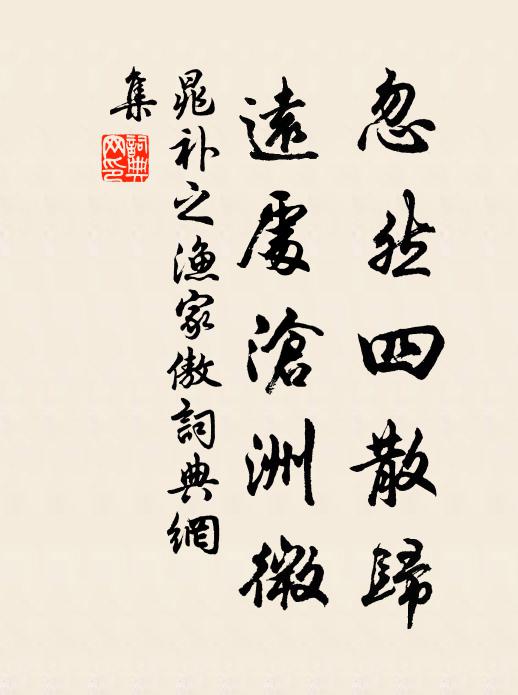 忽然四散歸
遠處滄洲微
晁補之漁家傲詞典網
集
詞典網印